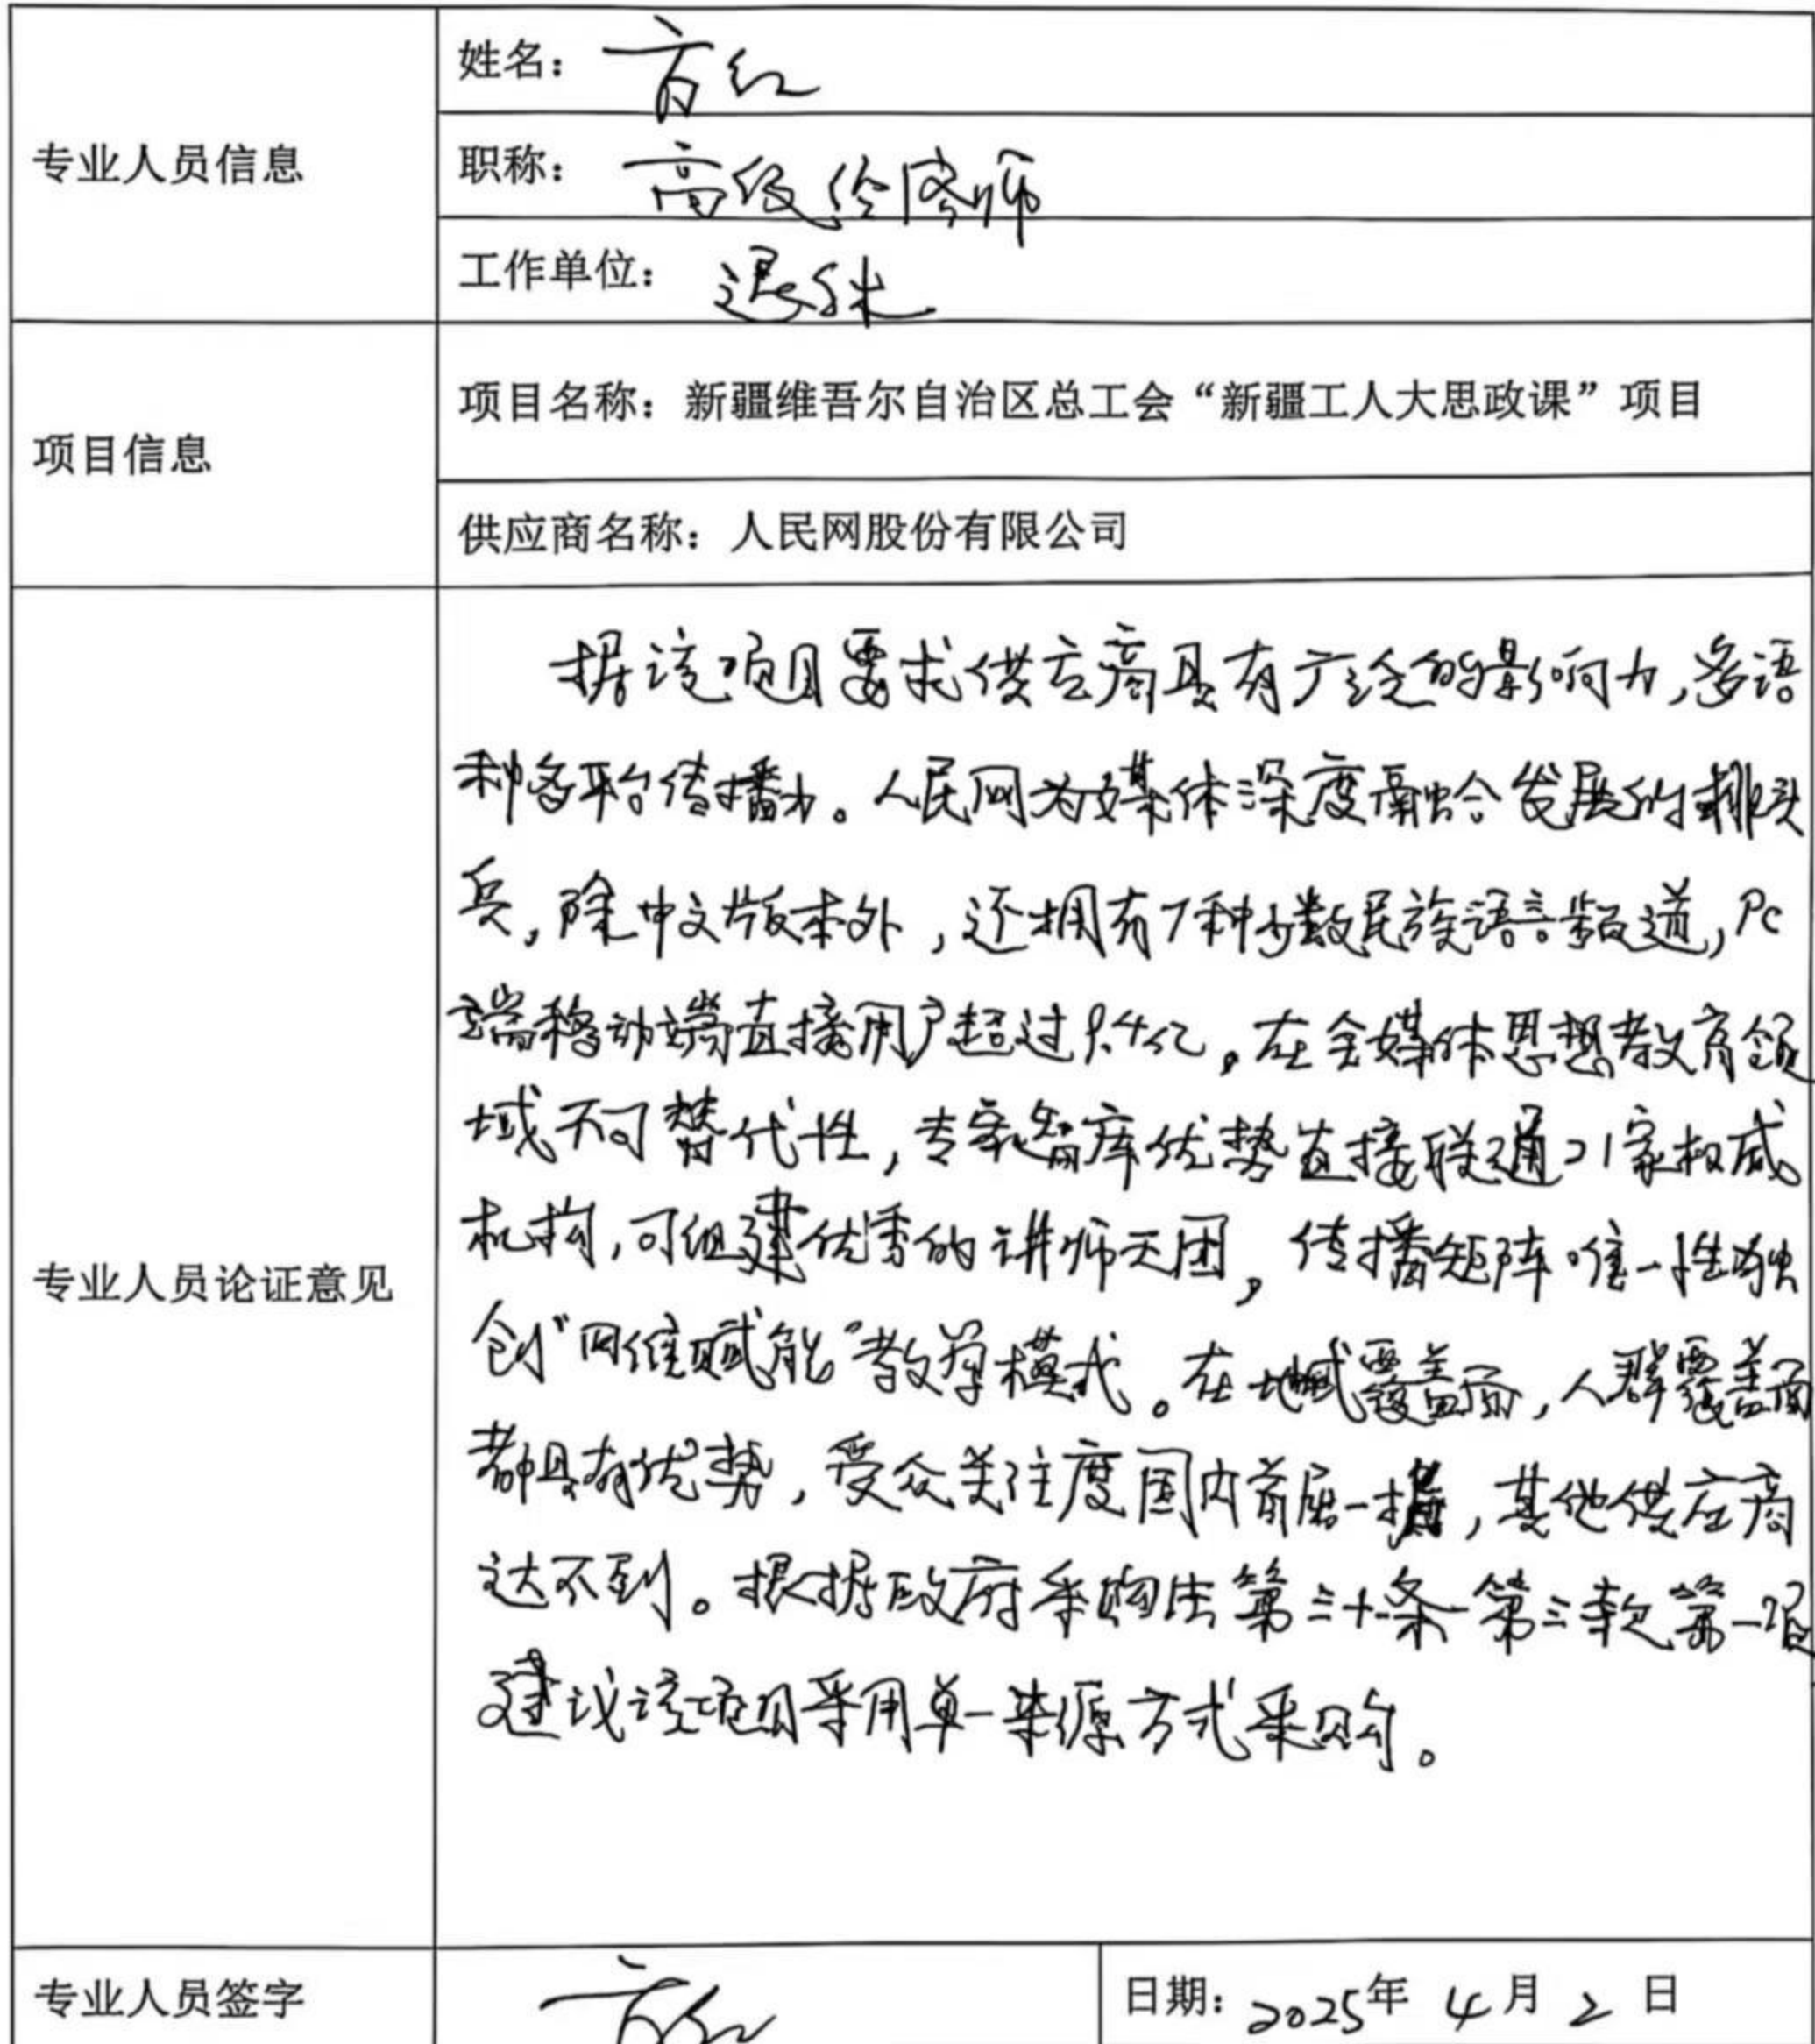 专业人员信息
姓名：方红
职称：高级经济师
工作单位：退休
项目信息
项目名称：新疆维吾尔自治区总工会“新疆工人大思政课”项目
供应商名称：人民网股份有限公司
专业人员论证意见
据该项目要求供应商具有广泛的影响力，多语
种多平台传播力。人民网为媒体深度融合发展的排头
兵，除中文版本外，还拥有7种少数民族语言频道，PC
端移动端直接用户超过 亿。在全媒体思想教育领
域不可替代性，专家智库优势直接联通21家权威
机构，可组建优秀的讲师天团，传播矩阵唯一性独
创“网络赋能”教学模式。在地域覆盖面，人群覆盖面
都具有优势，受众关注度国内首屈一指，其他供应商
达不到。根据政府采购法第三十一条第三款第一项
建议该项目采用单一来源方式采购。
专业人员签字
方红
日期：2025年 4月 2 日